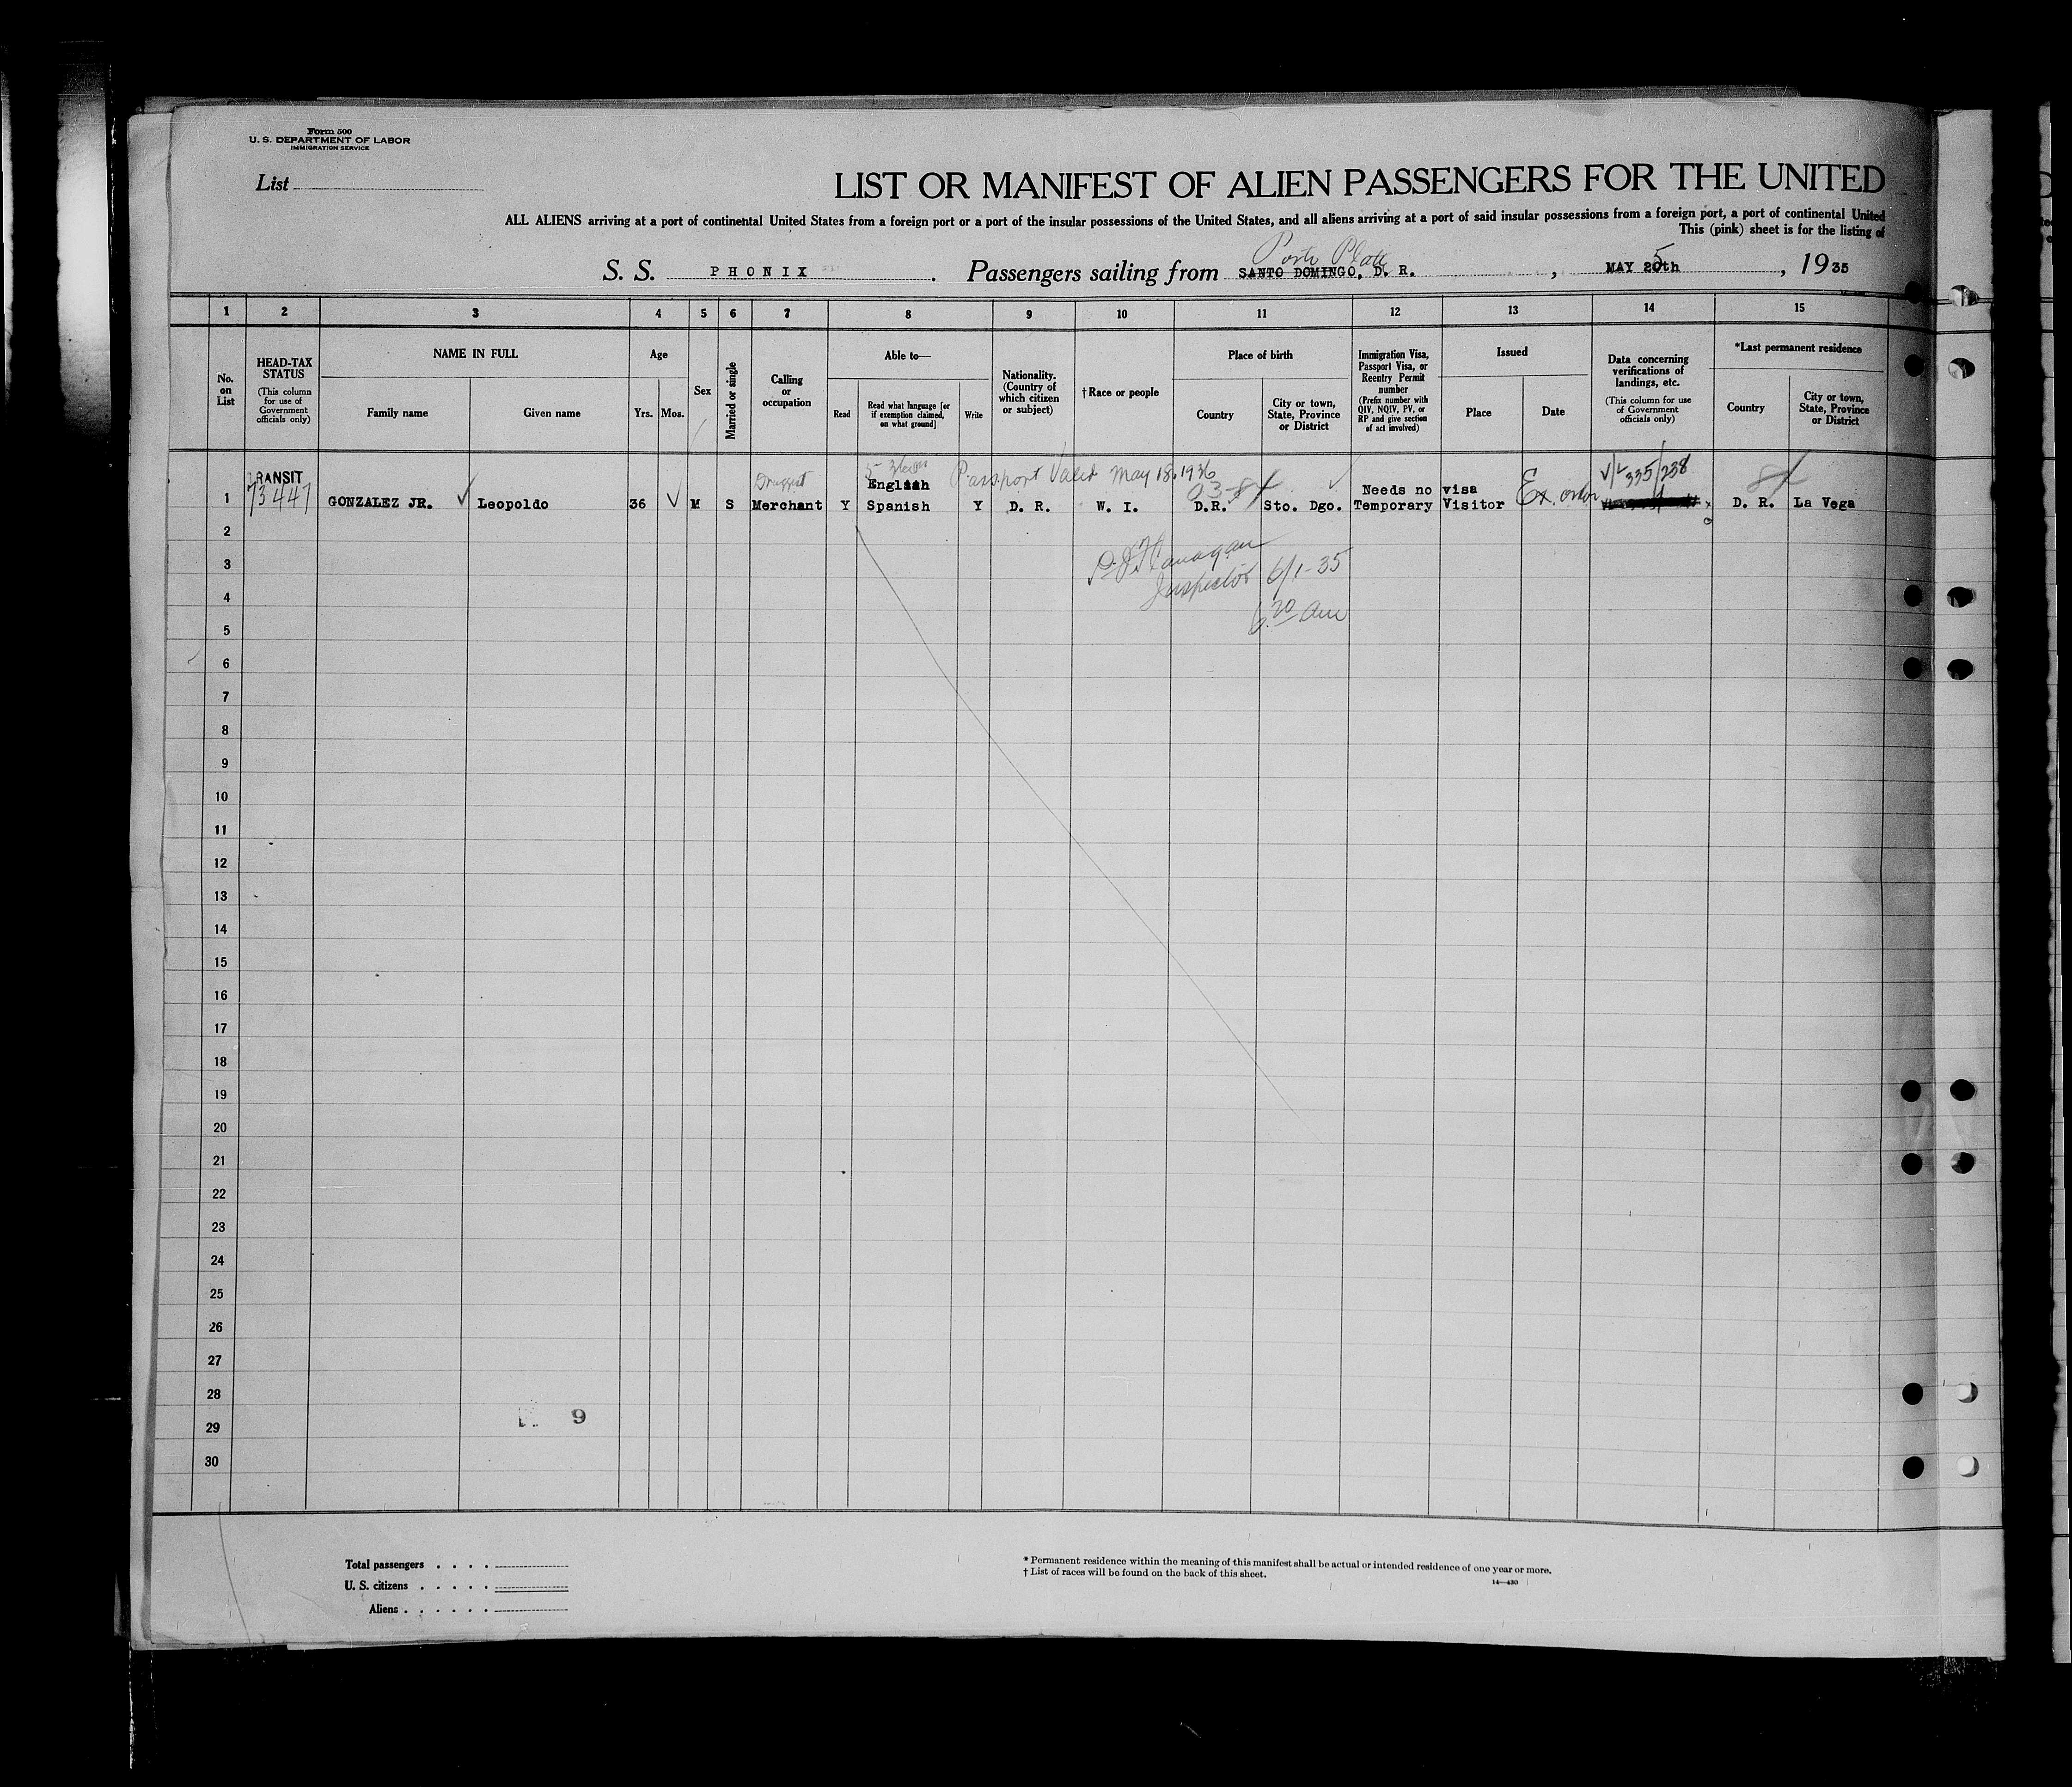 Form 500
U. S. DEPARTMENT OF LABOR
IMMIGRATION SERVICE
List
LIST OR MANIFEST OF ALIEN PASSENGERS FOR THE UNITED
ALL ALIENS arriving at a port of continental United States from a foreign port or a port of the insular possessions of the United States, and all aliens arriving at a port of said insular possessions from a foreign port, a port of continental United
This (pink) sheet is for the listing of
Porto Plata
S. S. PHONIX. Passengers sailing from SANTO DOMINGO, D. R., MAY 20th 5, 1935
1 2 3 4 5 6 7 8 9 10 11 12 13 14 15
No. on List
HEAD-TAX STATUS
(This column for use of Government officials only)
NAME IN FULL
Family name
Given name
Age
Yrs.
Mos.
Sex
Married or single
Calling or occupation
Able to—
Read
Read what language [or if exemption claimed, on what ground]
Write
Nationality. (Country of which citizen or subject)
†Race or people
Place of birth
Country
City or town, State, Province or District
Immigration Visa, Passport Visa, or Reentry Permit number
(Prefix number with QIV, NQIV, PV, or RP and give section of act involved)
Issued
Place
Date
Data concerning verifications of landings, etc.
(This column for use of Government officials only)
*Last permanent residence
Country
City or town, State, Province or District
TRANSIT Druggist Passport Valid May 18, 1936 V/L 335/238
73447 English 03-84 Needs no visa Ex. 84
1 GONZALEZ JR. Leopoldo 36 M S Merchant Y Spanish Y D. R. W. I. D.R. Sto. Dgo. Temporary Visitor D. R. La Vega
2
3 Inspector 6/1-35
4 6 20 am
5
6
7
8
9
10
11
12
13
14
15
16
17
18
19
20
21
22
23
24
25
26
27
28
9
29
30
Total passengers . . . .
U. S. citizens . . . . .
Aliens . . . . . .
* Permanent residence within the meaning of this manifest shall be actual or intended residence of one year or more.
† List of races will be found on the back of this sheet.
14—430